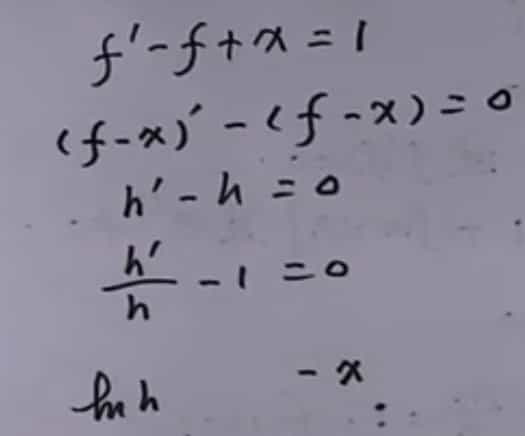 f' - f + x = 1
(f - x)' - (f - x) = 0
h' - h = 0
h'/h - 1 = 0
ln h - x :